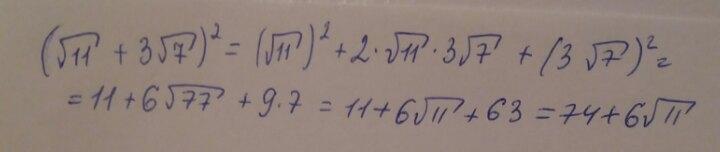 (√11 + 3√7)² = (√11)² + 2·√11·3√7 + (3√7)² =
= 11 + 6√77 + 9·7 = 11 + 6√11 + 63 = 74 + 6√11